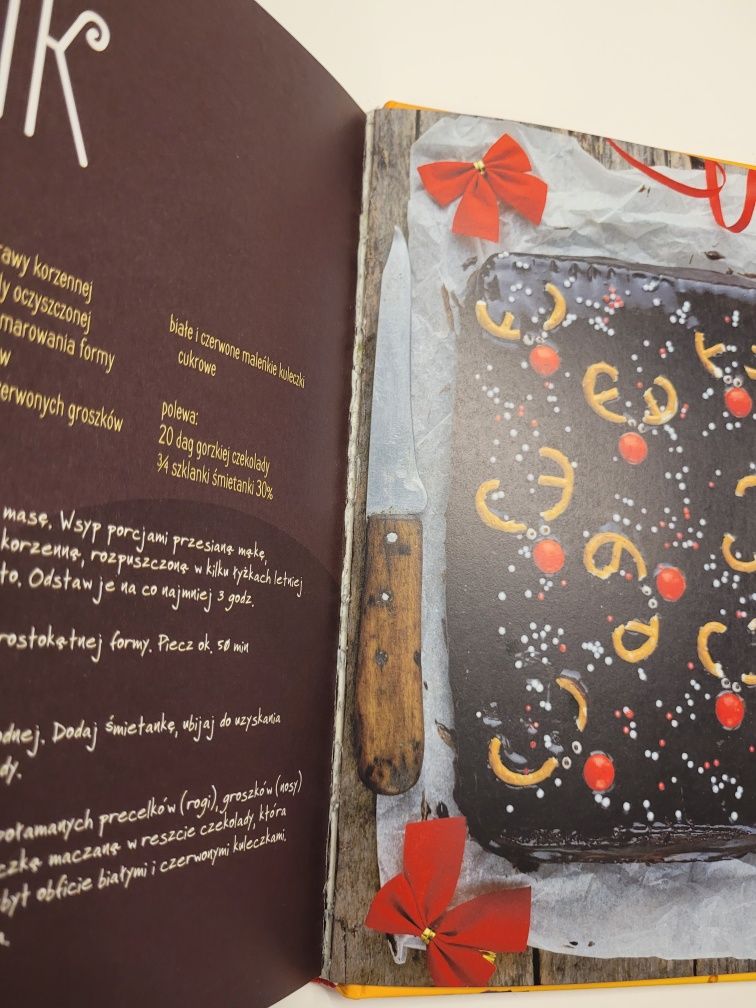 korzennej
oczyszczonej
smarowania formy
groszków
białe i czerwone maleńkie kuleczki
cukrowe
polewa:
20 dag gorzkiej czekolady
¾ szklanki śmietanki 30%
masę. Wsyp porcjami przesianą mąkę,
korzenną, rozpuszczoną w kilku łyżkach letniej
Odstaw je na co najmniej 3 godz.
formy. Piecz ok. 50 min
Dodaj śmietankę, ubijaj do uzyskania
połamanych precelków (rogi), groszków (nosy)
maczane w reszcie czekolady, która
zbyt obficie białymi i czerwonymi kuleczkami.